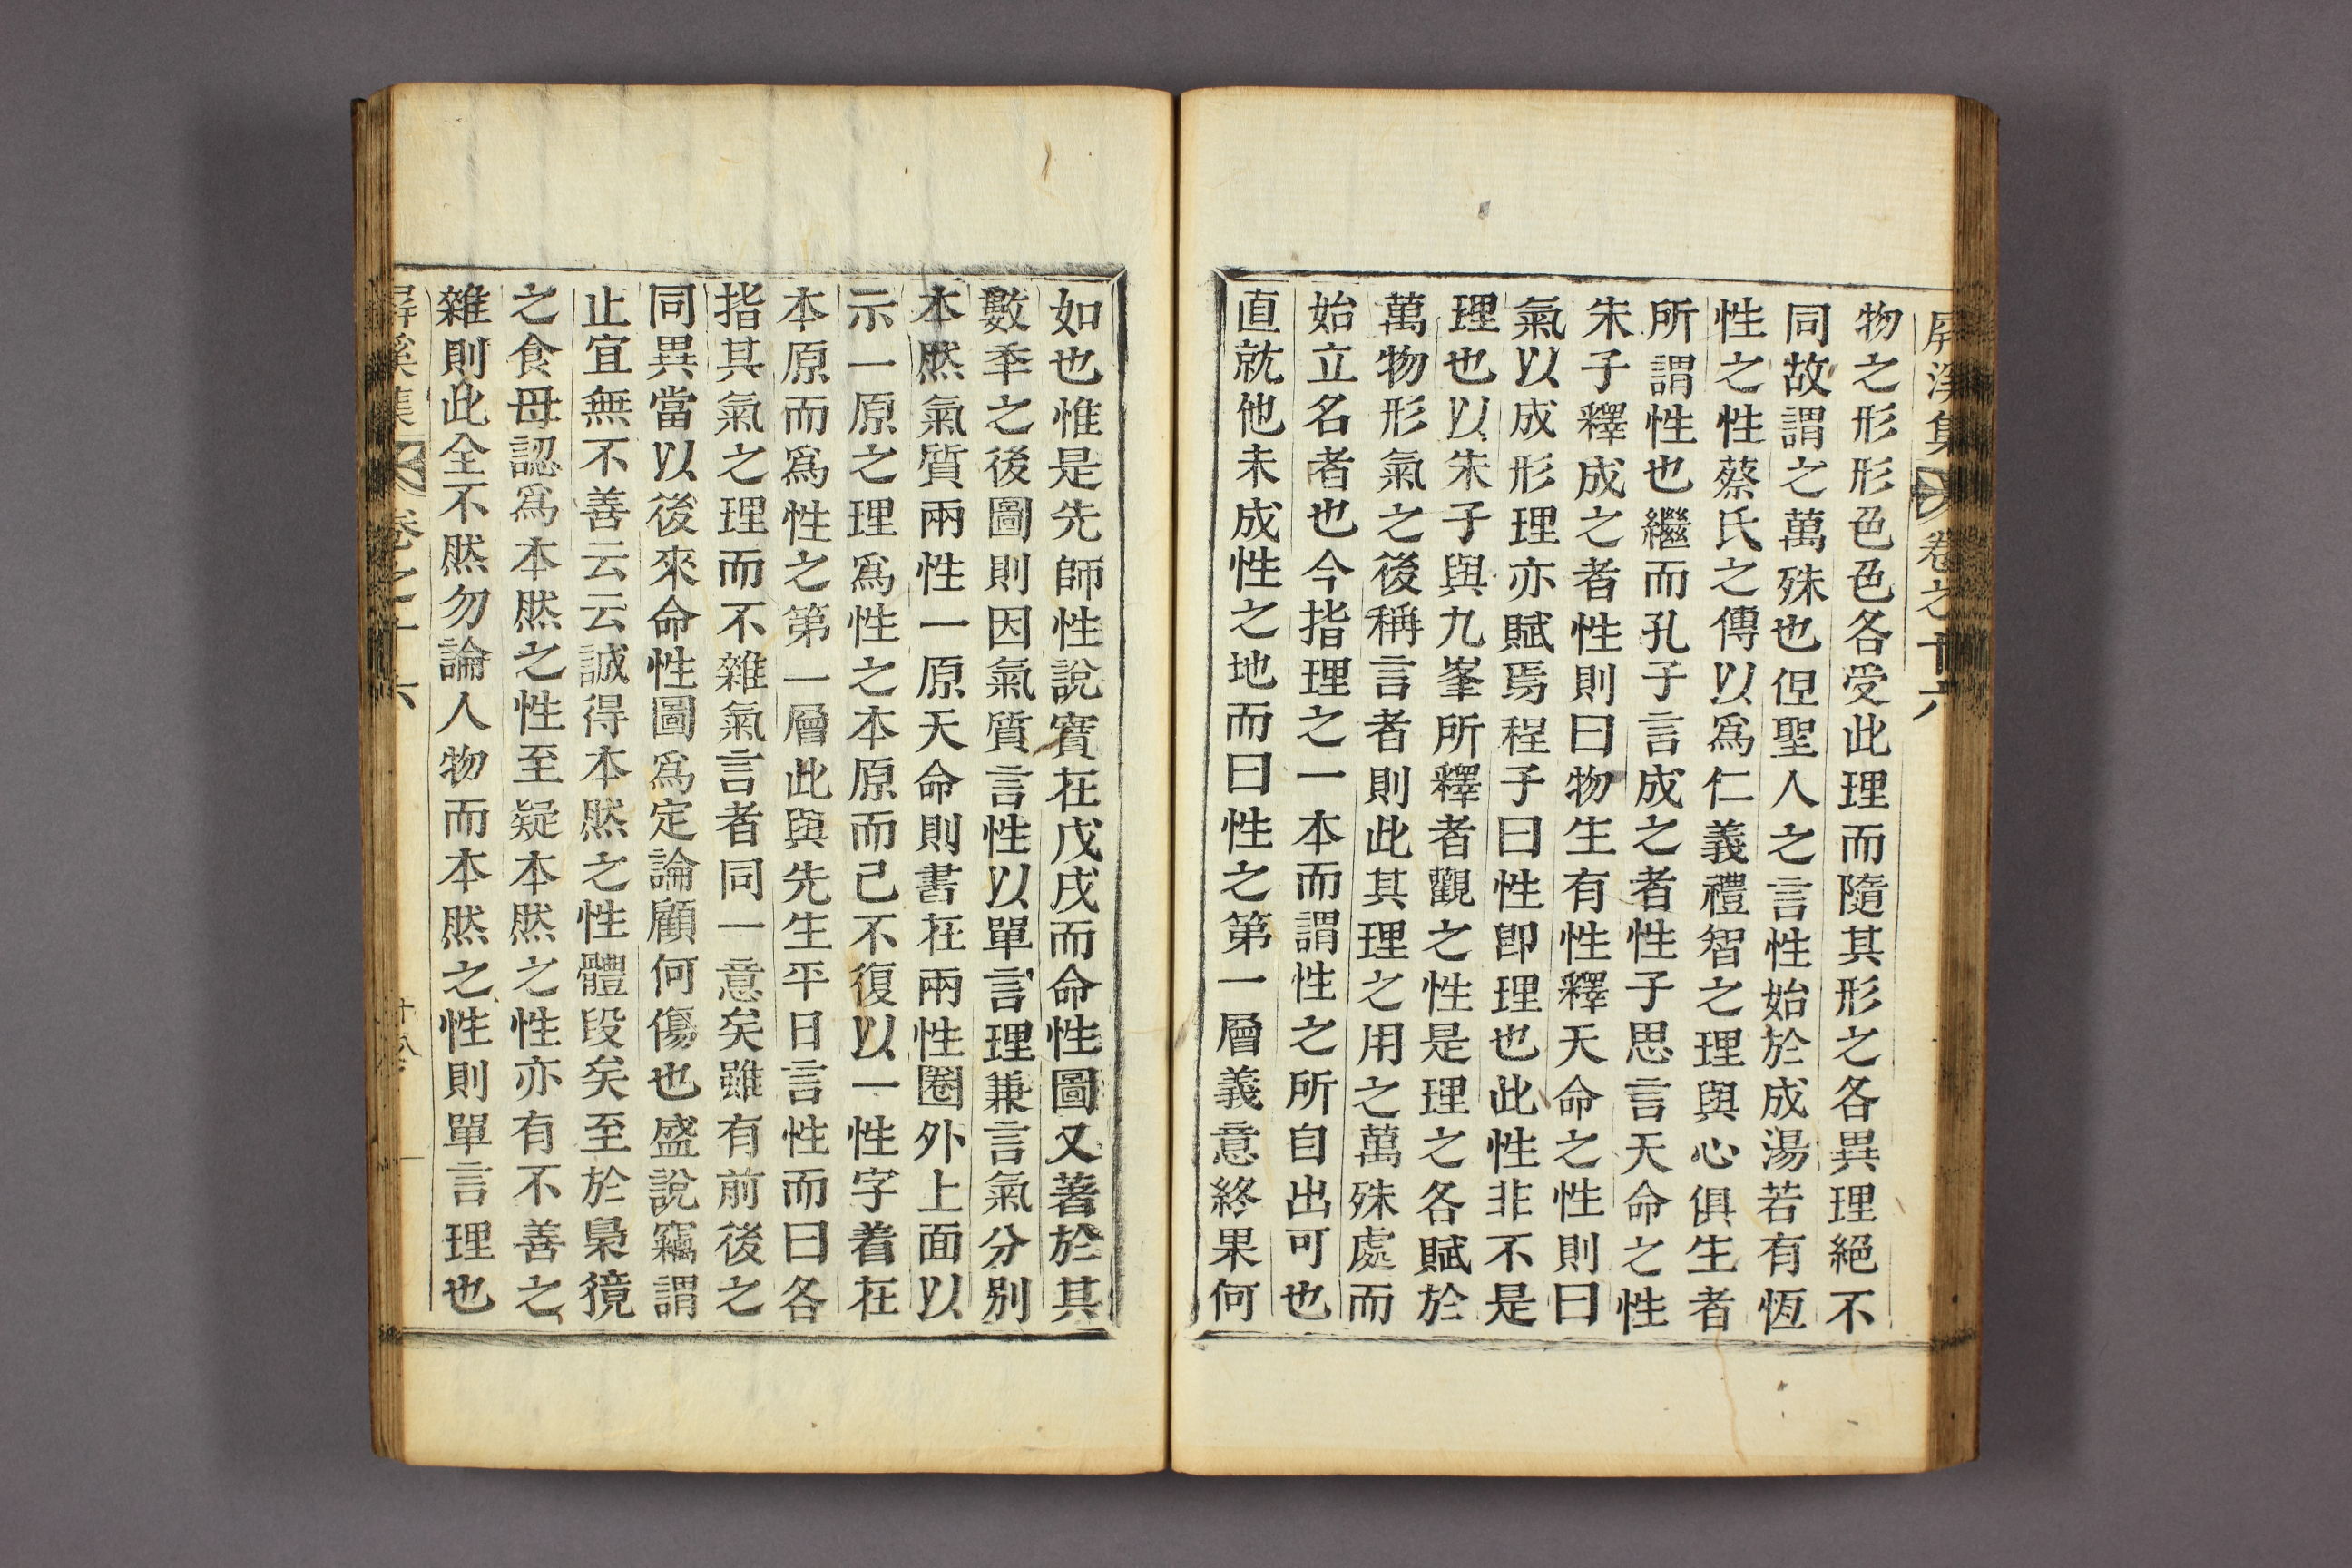 屛溪集 卷之十六
物之形形色色各受此理而隨其形之各異理絕不
同故謂之萬殊也但聖人之言性始於成湯若有恆
性之性蔡氏之傳以爲仁義禮智之理與心俱生者
所謂性也繼而孔子言成之者性子思言天命之性
朱子釋成之者性則曰物生有性釋天命之性則曰
氣以成形理亦賦焉程子曰性卽理也此性非不是
理也以朱子與九峯所釋者觀之性是理之各賦於
萬物形氣之後稱言者則此其理之用之萬殊處而
始立名者也今指理之一本而謂性之所自出可也
直就他未成性之地而曰性之第一層義意終果何
如也惟是先師性說實在戊戌而命性圖又著於其
數秊之後圖則因氣質言性以單言理兼言氣分別
本然氣質兩性一原天命則書在兩性圈外上面以
示一原之理爲性之本原而已不復以一性字着在
本原而爲性之第一層此與先生平日言性而曰各
指其氣之理而不雜氣言者同一意矣雖有前後之
同異當以後來命性圖爲定論顧何傷也盛說竊謂
止宜無不善云云誠得本然之性體段矣至於梟獍
之食母認爲本然之性至疑本然之性亦有不善之
雜則此全不然勿論人物而本然之性則單言理也
屛溪集 卷之十六 十八